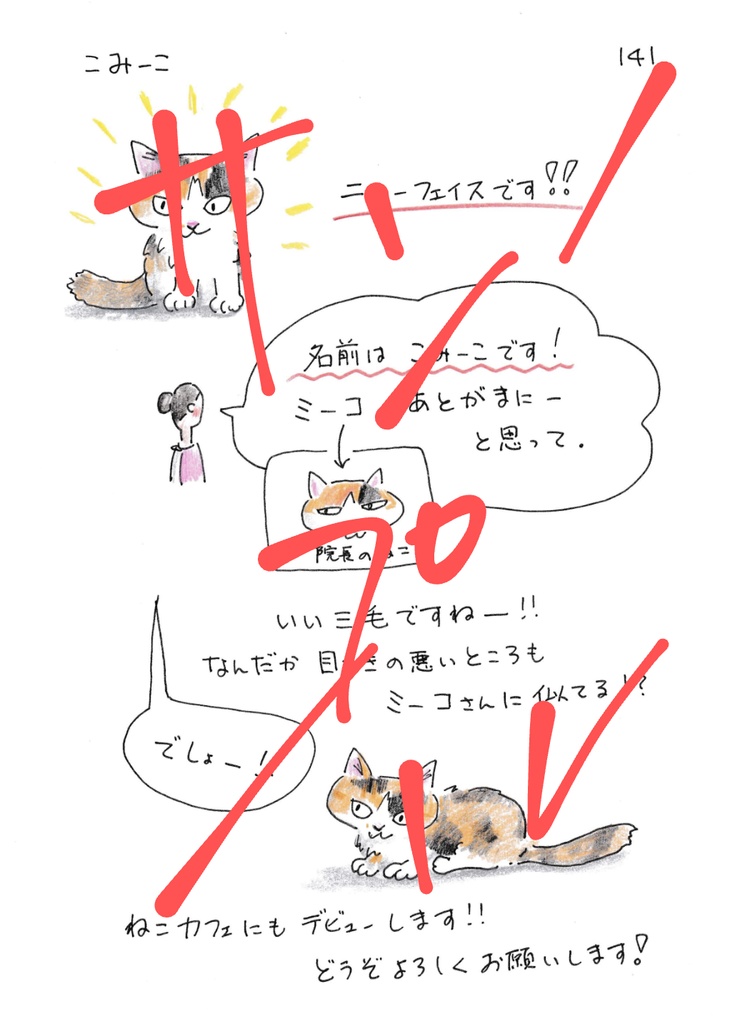 こみーこ
141
ニューフェイスです!!
名前は こみーこです!
ミーコ あとがまにー
と思って.
院長のねこ
いい三毛ですねー!!
なんだか 目つきの悪いところも
ミーコさんに似てる!?
でしょー!
ねこカフェにも デビューします!!
どうぞよろしくお願いします!
サンプル